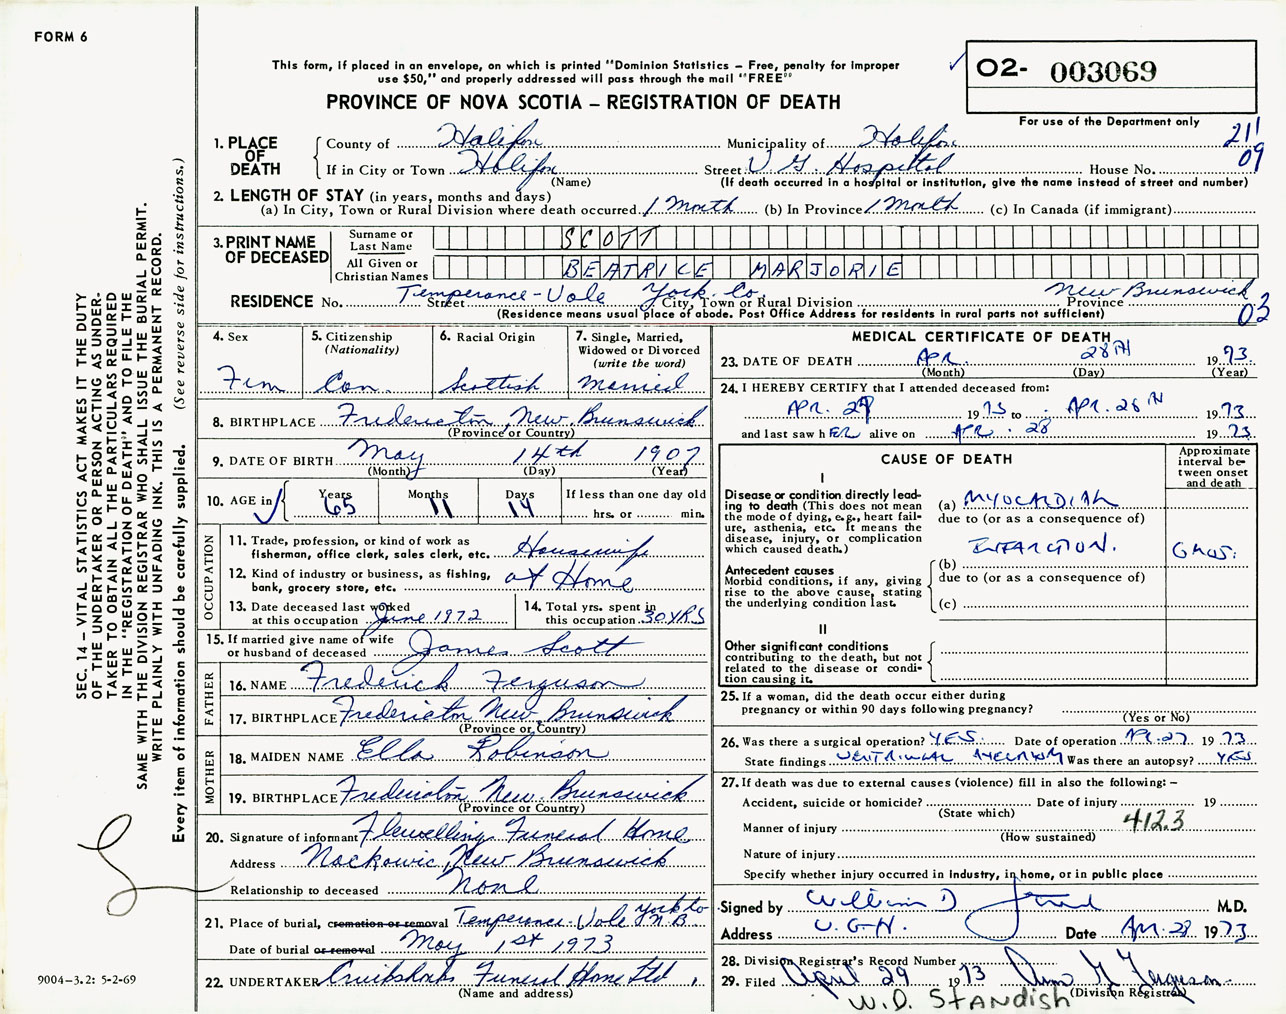 FORM 6
This form, if placed in an envelope, on which is printed "Dominion Statistics – Free, penalty for improper
use $50," and properly addressed will pass through the mail "FREE"
O2- 003069
PROVINCE OF NOVA SCOTIA – REGISTRATION OF DEATH
For use of the Department only
211
09
1. PLACE OF DEATH
County of Halifax Municipality of Halifax
If in City or Town Halifax Street V.G. Hospital House No.
(Name) (If death occurred in a hospital or institution, give the name instead of street and number)
2. LENGTH OF STAY (in years, months and days)
(a) In City, Town or Rural Division where death occurred 1 Month (b) In Province 1 Month (c) In Canada (if immigrant)
3. PRINT NAME OF DECEASED
Surname or Last Name SCOTT
All Given or Christian Names BEATRICE MARJORIE
RESIDENCE No. Temperance-Vale York Co. New Brunswick
Street City, Town or Rural Division Province
(Residence means usual place of abode. Post Office Address for residents in rural parts not sufficient)
03
4. Sex
Fem
5. Citizenship
(Nationality)
Can.
6. Racial Origin
Scottish
7. Single, Married,
Widowed or Divorced
(write the word)
Married
8. BIRTHPLACE Fredericton, New Brunswick
(Province or Country)
9. DATE OF BIRTH May 14th 1907
(Month) (Day) (Year)
10. AGE in
Years Months Days If less than one day old
65 11 14 hrs. or min.
OCCUPATION
11. Trade, profession, or kind of work as
fisherman, office clerk, sales clerk, etc. Housewife
12. Kind of industry or business, as fishing,
bank, grocery store, etc. at Home
13. Date deceased last worked
at this occupation June 1972
14. Total yrs. spent in
this occupation 30 YRS
15. If married give name of wife
or husband of deceased James Scott
FATHER
16. NAME Frederick Ferguson
17. BIRTHPLACE Fredericton New Brunswick
(Province or Country)
MOTHER
18. MAIDEN NAME Ella Robinson
19. BIRTHPLACE Fredericton New Brunswick
(Province or Country)
20. Signature of informant Flewelling Funeral Home
Address Nackawic, New Brunswick
Relationship to deceased None
21. Place of burial, cremation or removal Temperance-Vale York Co N.B.
Date of burial or removal May 1st 1973
22. UNDERTAKER Cruikshanks Funeral Home Ltd.
(Name and address)
MEDICAL CERTIFICATE OF DEATH
23. DATE OF DEATH APR. 28TH 1973
(Month) (Day) (Year)
24. I HEREBY CERTIFY that I attended deceased from:
APR. 1973 to APR. 28TH 1973
and last saw hER alive on APR. 28 1973
CAUSE OF DEATH
Approximate
interval be-
tween onset
and death
I
Disease or condition directly lead-
ing to death (This does not mean
the mode of dying, e.g., heart fail-
ure, asthenia, etc. It means the
disease, injury, or complication
which caused death.)
(a) MYOCARDIAL
due to (or as a consequence of)
INFARCTION.
Antecedent causes
Morbid conditions, if any, giving
rise to the above cause, stating
the underlying condition last.
(b)
due to (or as a consequence of)
(c)
II
Other significant conditions
contributing to the death, but not
related to the disease or condi-
tion causing it.
25. If a woman, did the death occur either during
pregnancy or within 90 days following pregnancy?
(Yes or No)
26. Was there a surgical operation? YES. Date of operation APR. 27 1973
State findings Was there an autopsy? YES
27. If death was due to external causes (violence) fill in also the following: –
Accident, suicide or homicide? Date of injury 19
(State which)
Manner of injury 412.3
(How sustained)
Nature of injury
Specify whether injury occurred in industry, in home, or in public place
Signed by William D M.D.
Address V.G.H. Date Apr. 28 1973
28. Division Registrar's Record Number
29. Filed April 29 1973 Ferguson
(Division Registrar)
W.D. STANDISH
SEC. 14 – VITAL STATISTICS ACT MAKES IT THE DUTY
OF THE UNDERTAKER OR PERSON ACTING AS UNDER-
TAKER TO OBTAIN ALL THE PARTICULARS REQUIRED
IN THE "REGISTRATION OF DEATH" AND TO FILE THE
SAME WITH THE DIVISION REGISTRAR WHO SHALL ISSUE THE BURIAL PERMIT.
WRITE PLAINLY WITH UNFADING INK. THIS IS A PERMANENT RECORD.
Every item of information should be carefully supplied. (See reverse side for instructions.)
9004–3.2: 5-2-69